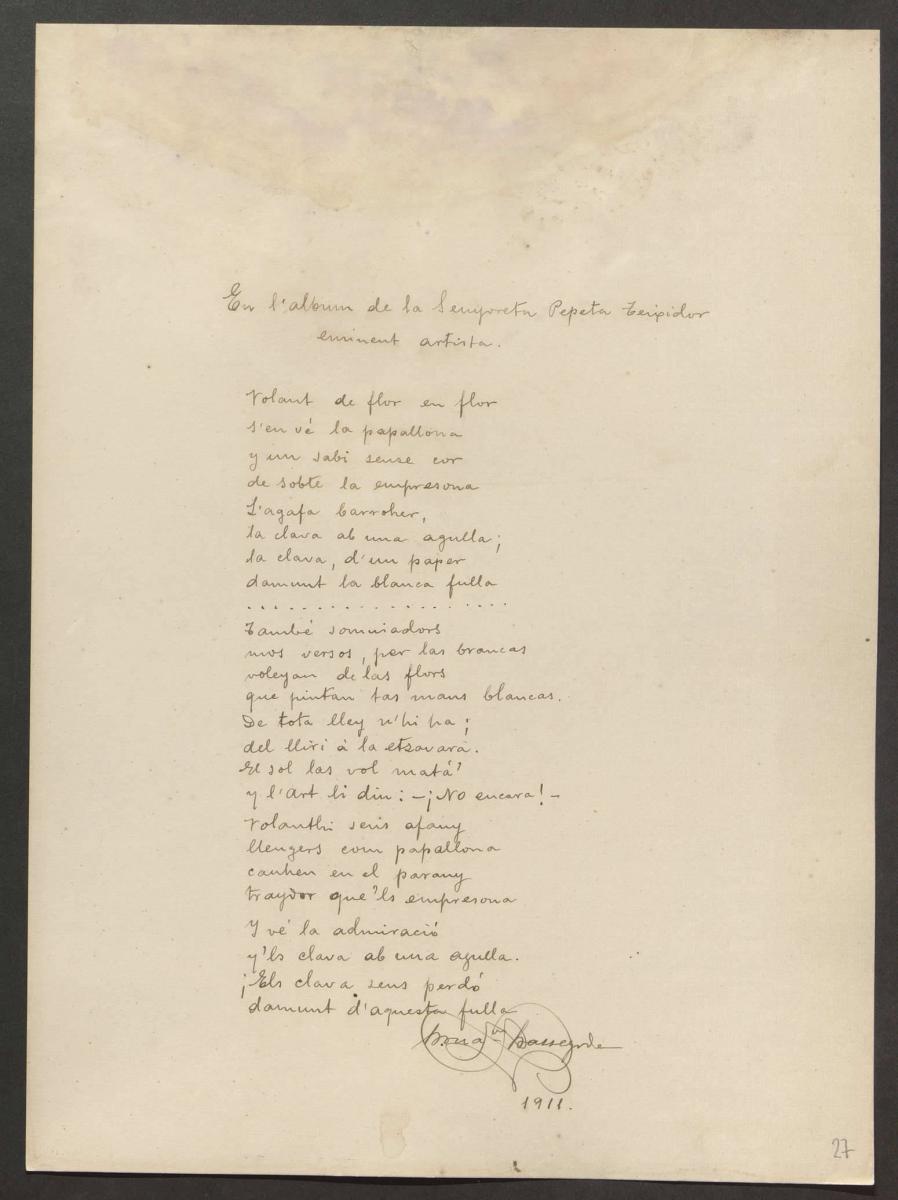 En l'album de la Senyoreta Pepeta Teixidor
eminent artista.
Volant de flor en flor
s'en vé la papallona
y un sabi sense cor
de sobte la empresona
L'agafa barroher,
la clava ab una agulla;
la clava, d'un paper
damunt la blanca fulla
. . . . . . . . . . . . . . . . . .
També somniadors
mos versos, per las brancas
voleyan de las flors
que pintan tas mans blancas.
De tota lley n'hi ha;
del lliri á la etzavara.
El sol las vol matá'
y l'Art li diu: -¡No encara!-
Volanthi sens afany
lleugers com papallona
cauhen en el parany
traydor que'ls empresona
Y vé la admiració
y'ls clava ab una agulla.
¡Els clava sens perdó
damunt d'aquesta fulla
Bassegoda
1911.
27